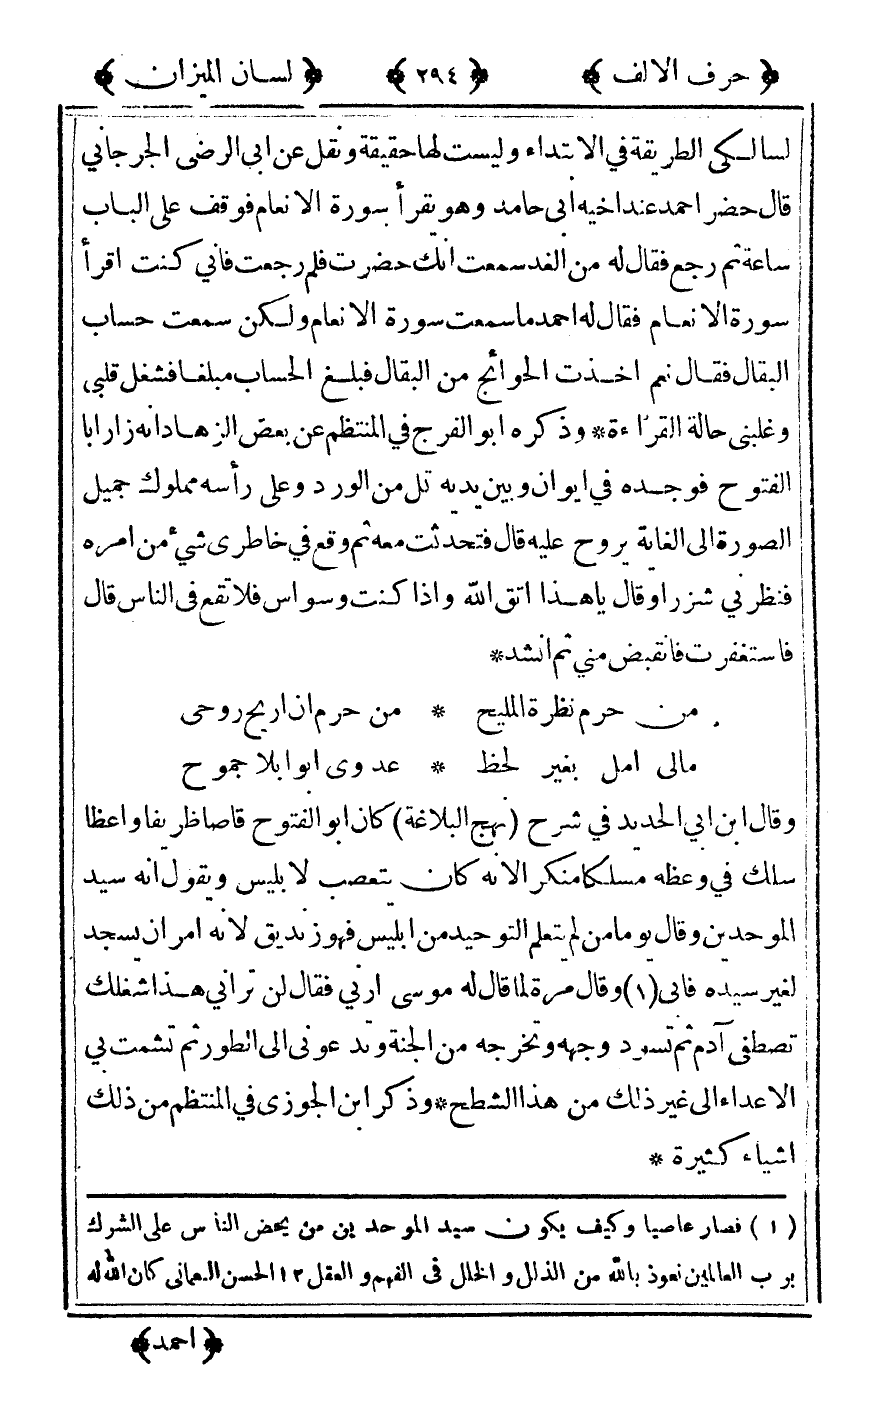 ﴿ حرف الالف ﴾ ﴿ ٢٩٤ ﴾ ﴿ لسان الميزان ﴾
لسالكى الطريقة في الابتداء وليست لها حقيقة ونقل عن ابي الرضى الجرجاني
قال حضر احمد عند اخيه ابى حامد وهو يقرأ سورة الانعام فوقف على الباب
ساعة ثم رجع فقال له من الغد سمعت انك حضرت فلم رجعت فاني كنت اقرأ
سورة الانعام فقال له احمد ما سمعت سورة الانعام ولكن سمعت حساب
البقال فقال نعم اخذت الحوائج من البقال فبلغ الحساب مبلغا فشغل قلبى
وغلبنى حالة القراءة * وذكره ابو الفرج في المنتظم عن بعض الزهاد انه زار ابا
الفتوح فوجده في ايوان وبين يديه تل من الورد وعلى رأسه مملوك جميل
الصورة الى الغاية يروح عليه قال فتحدثت معه ثم وقع في خاطرى شيء من امره
فنظر بي شزرا وقال ياهذا اتق الله واذا كنت وسواس فلا تقع فى الناس قال
فاستغفرت فانقبض مني ثم انشد *
من حرم نظرة المليح * من حرم ان اريح روحى
مالى امل بغير لحظ * عدوى ابوا بلا جموح
وقال ابن ابي الحديد في شرح (نهج البلاغة) كان ابو الفتوح قاصا ظريفا واعظا
سلك في وعظه مسلكا منكر الانه كان يتعصب لابليس ويقول انه سيد
الموحدين وقال يوما من لم يتعلم التوحيد من ابليس فهو زنديق لانه امر ان يسجد
لغير سيده فابى (١) وقال مرة لما قال له موسى ارني فقال لن تراني هذا شغلك
تصطفى آدم ثم تسود وجهه وتخرجه من الجنة وتدعونى الى الطور ثم تشمت بي
الاعداء الى غير ذلك من هذا الشطح * وذكر ابن الجوزى في المنتظم من ذلك
اشياء كثيرة *
(١) فصار عاصيا وكيف يكون سيد الموحدين من يحض الناس على الشرك
برب العالمين نعوذ بالله من الذلل و الخلل فى الفهم و العقل ١٢ الحسن النعمانى كان الله له
﴿ احمد ﴾